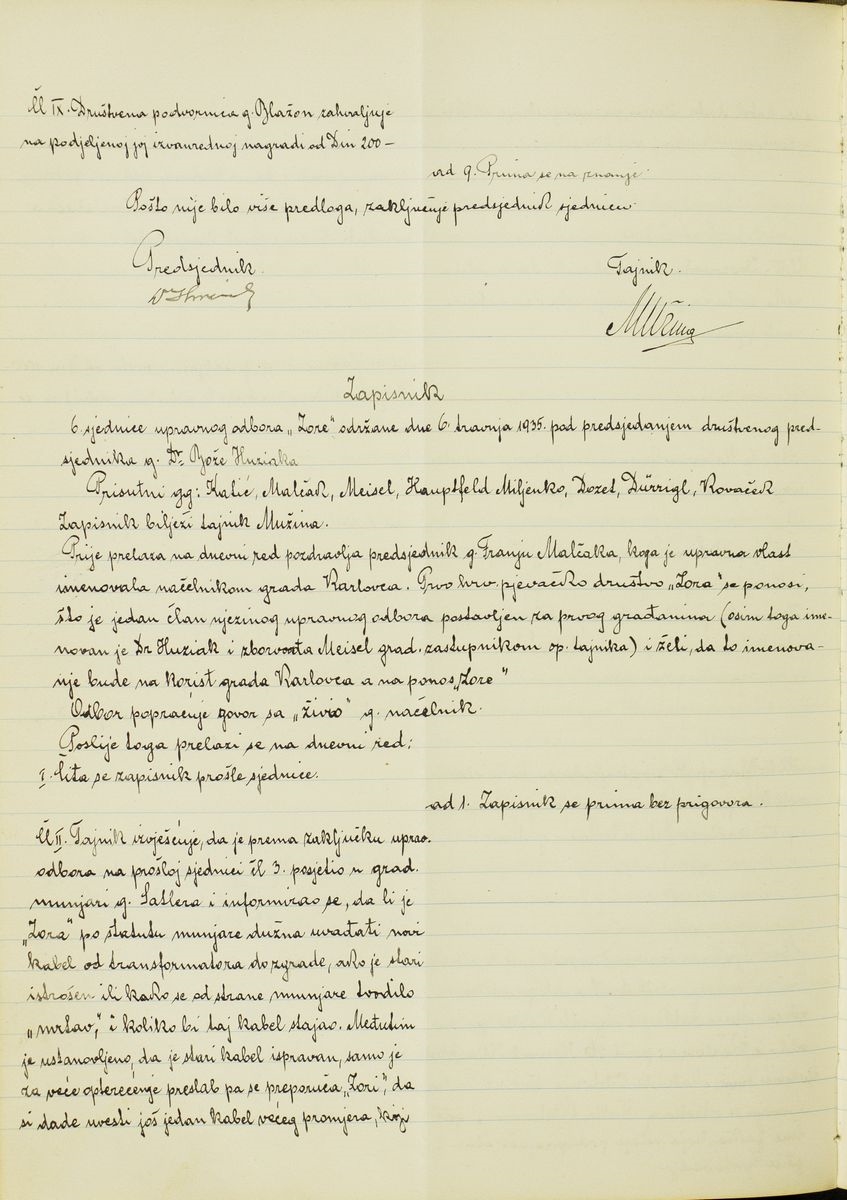 Čl IX. Društvena podvornica g. Blažon zahvaljuje
na podjeljenoj joj izvanrednoj nagradi od Din 200 –
ad 9. Prima se na znanje.
Pošto nije bilo više predloga, zaključuje predsjednik sjednicu.
Predsjednik.
Tajnik.
MMužina
Zapisnik
6. sjednice upravnog odbora „Zore" održane dne 6. travnja 1935. pod predsjedanjem društvenog pred-
sjednika g. Dr. Bože Huziaka
Prisutni gg: Katić, Malčak, Meisel, Hauptfeld Miljenko, Dozet, Dürrigl, Kovaček
Zapisnik bilježi tajnik Mužina.
Prije prelaza na dnevni red pozdravlja predsjednik g. Franju Malčaka, koga je upravna vlast
imenovala načelnikom grada Karlovca. Prvo hrv. pjevačko društvo „Zora" se ponosi,
što je jedan član njezinog upravnog odbora postavljen za prvog građanina (osim toga ime-
novan je Dr Huziak i zborvođa Meisel grad. zastupnikom op. tajnika) i želi, da to imenova-
nje bude na korist grada Karlovca a na ponos „Zore"
Odbor popraćuje govor sa „živio" g. načelnik.
Poslije toga prelazi se na dnevni red:
I. Čita se zapisnik prošle sjednice.
ad 1. Zapisnik se prima bez prigovora.
Čl II. Tajnik izvješćuje, da je prema zaključku uprav.
odbora na prošloj sjednici čl 3. posjetio u grad.
munjari g. Satlera i informirao se, da li je
„Zora" po štatutu munjare dužna urađati novi
kabel od transformatora do zgrade, ako je stari
istrošen ili kako se od strane munjare tvrdilo
„mrtav", i koliko bi taj kabel stajao. Međutim
je ustanovljeno, da je stari kabel ispravan, samo je
za veće opterećenje preslab pa se preporuča „Zori", da
si dade uvesti još jedan kabel većeg promjera, koji